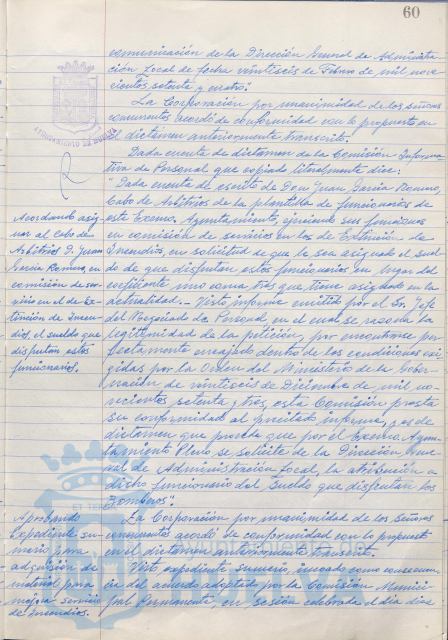 60
comunicación de la Dirección General de Administra-
ción Local de fecha veintiseis de Febrero de mil nove-
cientos setenta y cuatro".
La Corporación por unanimidad de los señores
concurrentes acordó de conformidad con lo propuesto en
el dictámen anteriormente transcrito.
AYUNTAMIENTO DE HUELVA
Dada cuenta de dictamen de la Comisión Informa-
tiva de Personal que copiado literalmente dice:
"Dada cuenta de escrito de Don Juan García Romero,
Cabo de Arbitrios de la plantilla de funcionarios de
este Excmo. Ayuntamiento, ejerciendo sus funciones
en comisión de servicios en los de Extinción de
Incendios, en solicitud de que le sea asignado el suel-
do de que disfrutan estos funcionarios en lugar del
coeficiente uno coma tres que tiene asignado en la
actualidad.- Visto informe emitido por el Sr. Jefe
del Negociado de Personal en el cual se razona la
legitimidad de la petición, por encontrarse per-
fectamente encajado dentro de las condiciones exi-
gidas por la Orden del Ministerio de la Gober-
nación de veintiseis de Diciembre de mil no-
vecientos setenta y tres, esta Comisión presta
su conformidad al precitado informe, y es de
dictamen que procede que por el Excmo. Ayun-
tamiento Pleno se solicite de la Dirección Gene-
ral de Administración Local, la atribución a
dicho funcionario del sueldo que disfrutan los
Bomberos".
Acordando asig-
nar al Cabo de
Arbitrios D. Juan
García Romero, en
comisión de ser-
vicio en el de Ex-
tinción de Incen-
dios, el sueldo que
disfrutan estos
funcionarios.
La Corporación por unanimidad de los Señores
concurrentes acordó de conformidad con lo propuesto
en el dictamen anteriormente transcrito.
Visto expediente sumario, incoado como consecuen-
cia del acuerdo adoptado por la Comisión Munici-
pal Permanente, en sesión celebrada el día doce
Aprobando
Expediente su-
mario para
adquisición de
material para
mejora servicio
de Incendios.
HUELVA